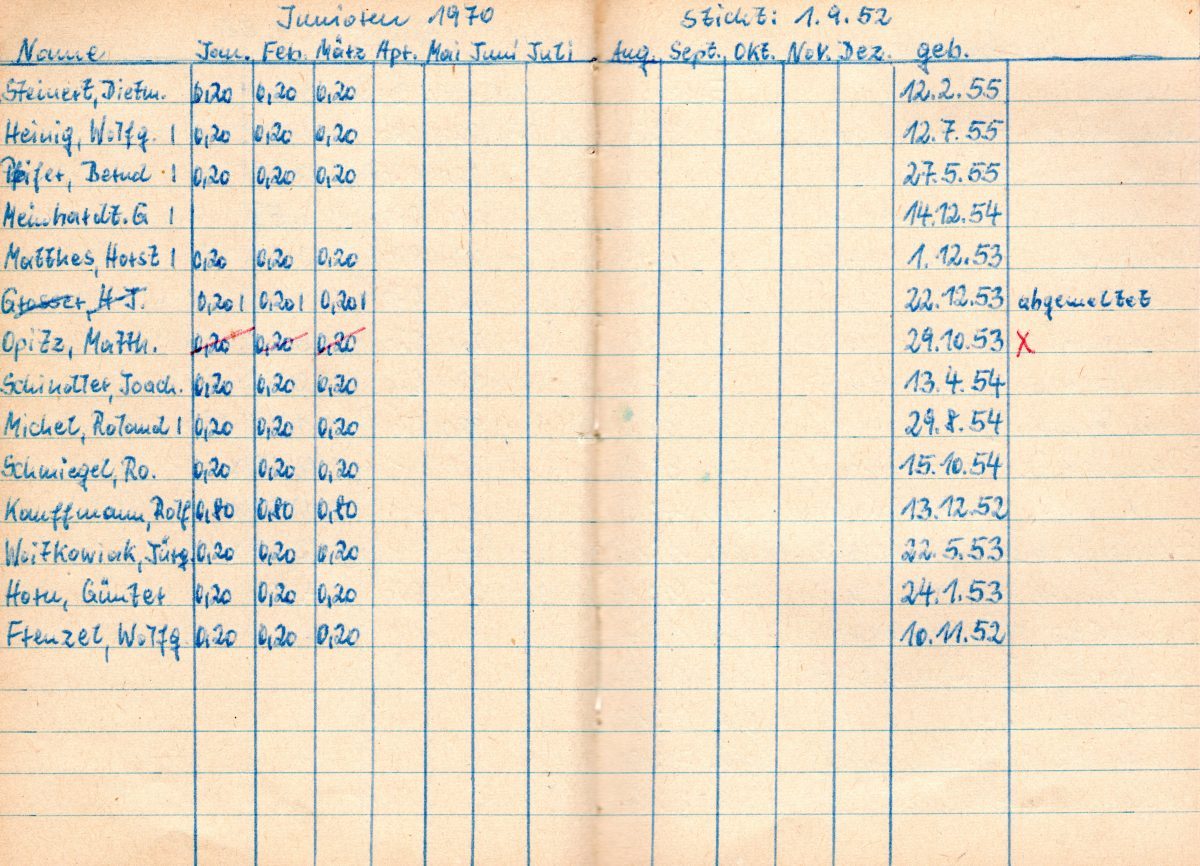 Junioren 1970 Sticht: 1.9.52
Name Jan. Feb. März Apr. Mai Juni Juli Aug. Sept. Okt. Nov. Dez. geb.
Steinert, Dietm. 0,20 0,20 0,20 12.2.55
Heinig, Wolfg. 1 0,20 0,20 0,20 12.7.55
Pfeifer, Bernd 1 0,20 0,20 0,20 27.5.55
Meinhardt. G 1 14.12.54
Matthes, Horst 1 0,20 0,20 0,20 1.12.53
Grosser, H-J. 0,20 1 0,20 1 0,20 1 22.12.53 abgemeltet
Opitz, Matth. 0,20 0,20 0,20 29.10.53 X
Schindler, Joach. 0,20 0,20 0,20 13.4.54
Michel, Roland 1 0,20 0,20 0,20 29.8.54
Schmiegel, Ro. 0,20 0,20 0,20 15.10.54
Kauffmann, Rolf 0,80 0,80 0,80 13.12.52
Woitkowiak, Jürg. 0,20 0,20 0,20 22.5.53
Horn, Günter 0,20 0,20 0,20 24.1.53
Frenzel, Wolfg 0,20 0,20 0,20 10.11.52